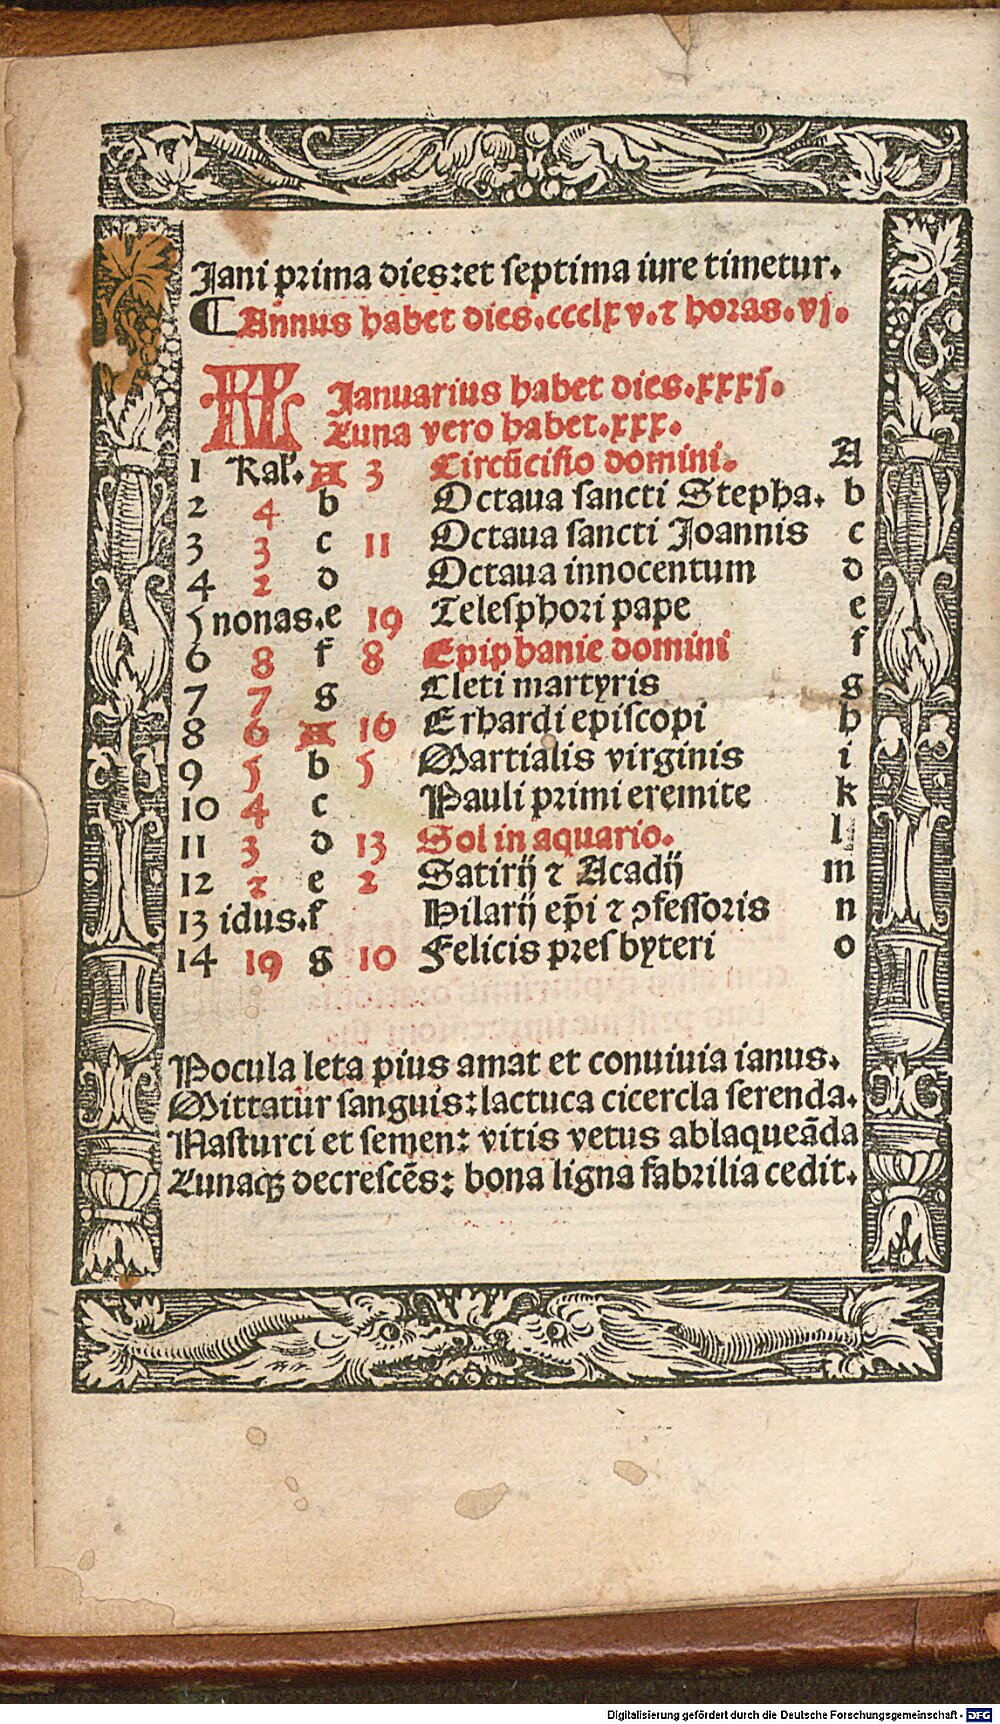 Jani prima dies:et septima iure timetur.
¶Annus habet dies.ccclxv.⁊ horas.vj.
KL Januarius habet dies.xxxj.
Luna vero habet.xxx.
1 Kal'. A 3 Circūcisio domini. A
2 4 b Octaua sancti Stepha. b
3 3 c 11 Octaua sancti Joannis c
4 2 d Octaua innocentum d
5 nonas.e 19 Telesphori pape e
6 8 f 8 Epiphanie domini f
7 7 g Cleti martyris g
8 6 A 16 Erhardi episcopi h
9 5 b 5 Martialis virginis i
10 4 c Pauli primi eremite k
11 3 d 13 Sol in aquario. l
12 2 e 2 Satirij ⁊ Acadij m
13 idus.f Hilarij ep̄i ⁊ ꝯfessoris n
14 19 g 10 Felicis presbyteri o
Pocula leta pius amat et conuiuia ianus.
Mittatur sanguis:lactuca cicercla serenda.
Nasturci et semen: vitis vetus ablaqueāda
Lunaqꝫ decrescēs: bona ligna fabrilia cedit.
Digitalisierung gefördert durch die Deutsche Forschungsgemeinschaft - DFG